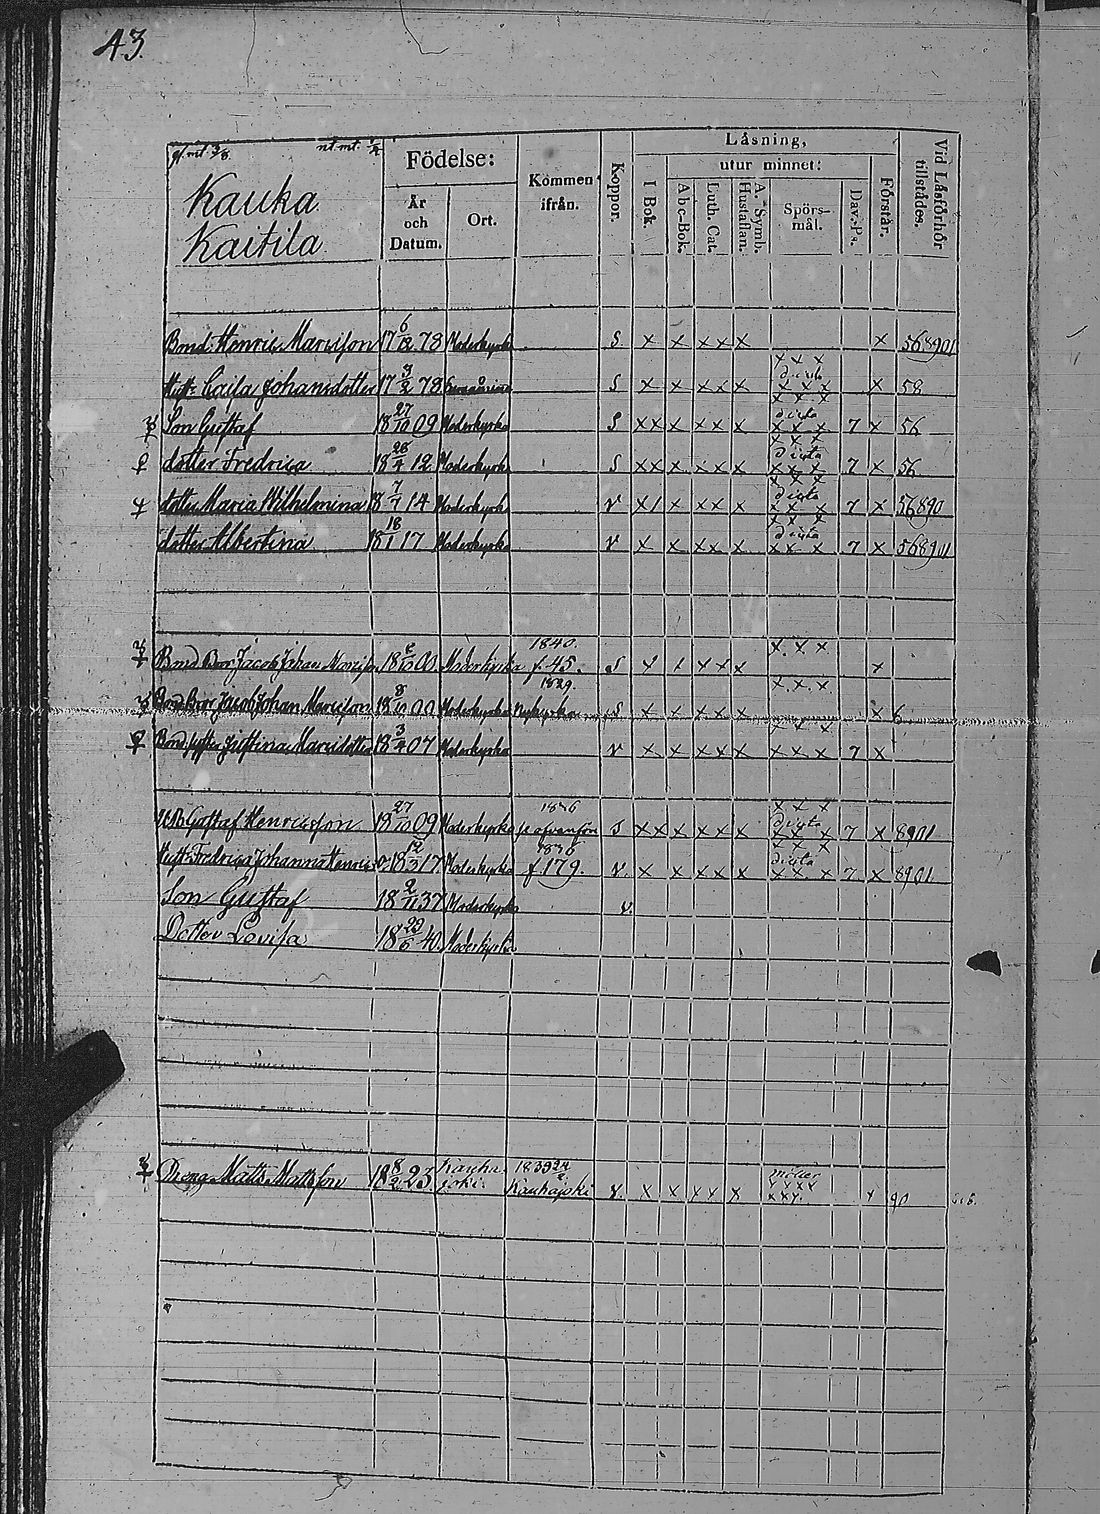 43.
gl. mt. 3/8. nt. mt. 1/4
Kauka
Kaitila
Födelse:
År och Datum.
Ort.
Kommen ifrån.
Koppor.
Läsning,
I Bok.
utur minnet:
Abc-Bok.
Luth. Cat.
A. Symb. Hustaflan.
Spörsmål.
Dav. Ps.
Förstår.
Vid Läsförhör tillstädes.
Bond. Henric Marcisson 17 6/12 78 Moderkyrka S x x x x x x x 568901
Hust: Caisa Johansdotter 17 3/2 78 S x x x x x x x x dicta x x x x 58
Son Gustaf 18 27/10 09 Moderkyrka S x x x x x x x x x dicta x x x 7 x 56
dotter Fredrica 18 28/4 12 Moderkyrk S x x x x x x x x x dicta x x x 7 x 56
dotter Maria Wilhelmina 18 7/7 14 Moderkyrk v x 1 x x x x x x x dicta x x x 7 x 56890
dotter Albertina 18 18/1 17 Moderkyrka v x x x x x x x x dicta x x x 7 x 568901
Bond Bror Jacob Johan Marcisson 18 8/10 00 Moderkyrka 1840. f. 45. S x x x x x x x x x x
Bond Bror Jacob Johan Marcisson 18 8/10 00 Moderkyrka 1839. Nykyrka S x x x x x x x x x x 6
Bond syster Justina Marcidotter 18 3/4 07 Moderkyrka v x x x x x x x x x x x x 7 x
Gustaf Henricsson 18 27/10 09 Moderkyrka 1836 se ofvanför S x x x x x x x x x x dicta x x x 7 x 8901
Hust: Fredrica Johanna Henricsd. 18 12/3 17 Moderkyrka 1836 f 179. v. x x x x x x x x x dicta x x x 7 x 8901
Son Gustaf 18 2/11 37 Moderkyrka v.
Dotter Lovisa 18 23/6 40. Moderkyrka
Dreng Matts Mattsson 18 8/2 23 Kauhajoki. 1839 Kauhajoki v. x x x x x x x x x 90